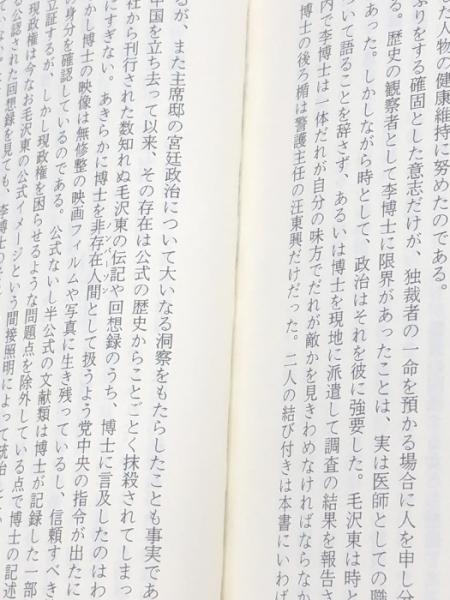 した人物の健康維持に努めたのである。
ぶりをする確固とした意志だけが、独裁者の一命を預かる場合に人を申し分
る。歴史の観察者として李博士に限界があったことは、実は医師としての職
あった。しかしながら時として、政治はそれを彼に強要した。毛沢東は時と
ついて語ることを辞さず、あるいは博士を現地に派遣して調査の結果を報告さ
内で李博士は一体だれが自分の味方でだれが敵かを見きわめなければならなか
博士の後ろ楯は警護主任の汪東興だけだった。二人の結び付きは本書にいわば
るが、また主席邸の宮廷政治について大いなる洞察をもたらしたことも事実であ
中国を立ち去って以来、その存在は公式の歴史からことごとく抹殺されてしまっ
社から刊行された数知れぬ毛沢東の伝記や回想録のうち、博士に言及したのはわ
にすぎない。あきらかに博士を非存在人間として扱うよう党中央の指令が出たに
ノンパーソン
しかし博士の映像は無修整の映画フィルムや写真に生き残っているし、信頼すべき
の身分を確認しているのである。公式ないし半公式の文献類は博士が記録した一部
立証するが、しかし現政権を困らせるような問題点を除外している点で博士の記述
現政権は今なお毛沢東の公式イメージという間接照明によって統治し
る公認された回想録を見ても、李博士の